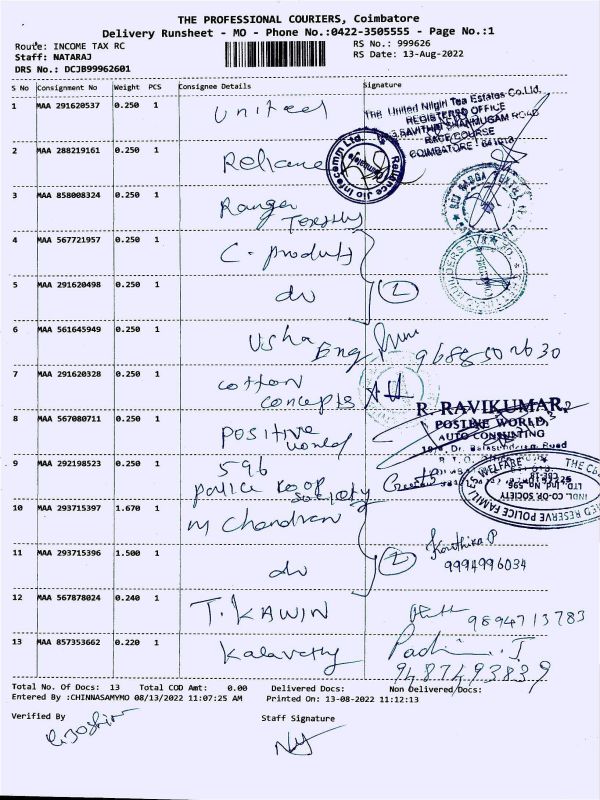 THE PROFESSIONAL COURIERS, Coimbatore
Delivery Runsheet - MO - Phone No.:0422-3505555 - Page No.:1
Route: INCOME TAX RC
RS No.: 999626
Staff: NATARAJ
RS Date: 13-Aug-2022
DRS No.: DCJB99962601
S No Consignment No Weight PCS Consignee Details Signature
1 MAA 291620537 0.250 1 United
The United Nilgiri Tea Estates Co.Ltd.
REGISTERED OFFICE
RACE COURSE
2 MAA 288219161 0.250 1 Reliance
Reliance Jio Infocomm Ltd.
3 MAA 858008324 0.250 1 Ranga
4 MAA 567721957 0.250 1 C. products
5 MAA 291620498 0.250 1 do 2
6 MAA 561645949 0.250 1 Usha Eng
7 MAA 291620328 0.250 1 cotton
concepts
R. RAVIKUMAR,
8 MAA 567080711 0.250 1 positive
world
POSTIVE WORLD,
AUTO CONSULTING
9 MAA 292198523 0.250 1 596
police coop
society
10 MAA 293715397 1.670 1 M Chandran
Karthika P
9994996034
11 MAA 293715396 1.500 1 do 2
12 MAA 567878024 0.240 1 T. KAWIN
9894713783
13 MAA 857353662 0.220 1 Kalavathy
9487493839
Total No. Of Docs: 13 Total COD Amt: 0.00 Delivered Docs: Non Delivered Docs:
Entered By :CHINNASAMYMO 08/13/2022 11:07:25 AM Printed On: 13-08-2022 11:12:13
Verified By Staff Signature